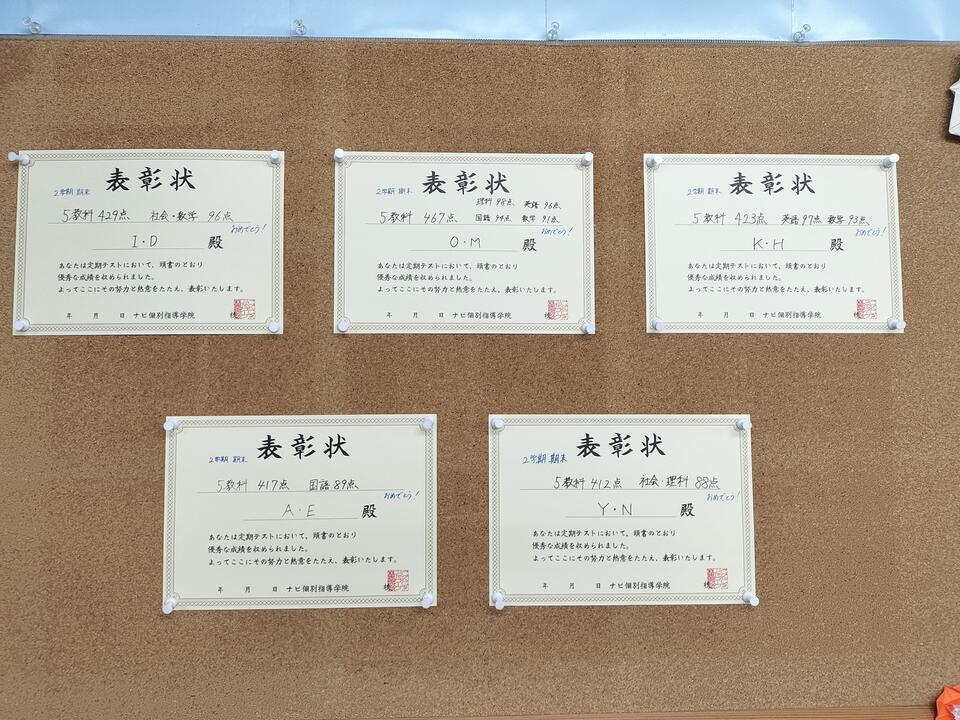 表彰状
2学期 期末
5教科 429点 社会・数学 96点
おめでとう!
I・D 殿
あなたは定期テストにおいて、頭書のとおり
優秀な成績を収められました。
よってここにその努力と熱意をたたえ、表彰いたします。
年 月 日 ナビ個別指導学院 校
表彰状
2学期 期末
理科 98点 英語 96点
5教科 467点 国語 94点 数学 91点
おめでとう!
O・M 殿
あなたは定期テストにおいて、頭書のとおり
優秀な成績を収められました。
よってここにその努力と熱意をたたえ、表彰いたします。
年 月 日 ナビ個別指導学院 校
表彰状
2学期 期末
5教科 423点 英語 97点 数学 93点
おめでとう!
K・H 殿
あなたは定期テストにおいて、頭書のとおり
優秀な成績を収められました。
よってここにその努力と熱意をたたえ、表彰いたします。
年 月 日 ナビ個別指導学院 校
表彰状
2学期 期末
5教科 417点 国語 89点
おめでとう!
A・E 殿
あなたは定期テストにおいて、頭書のとおり
優秀な成績を収められました。
よってここにその努力と熱意をたたえ、表彰いたします。
年 月 日 ナビ個別指導学院 校
表彰状
2学期 期末
5教科 412点 社会・理科 88点
おめでとう!
Y・N 殿
あなたは定期テストにおいて、頭書のとおり
優秀な成績を収められました。
よってここにその努力と熱意をたたえ、表彰いたします。
年 月 日 ナビ個別指導学院 校